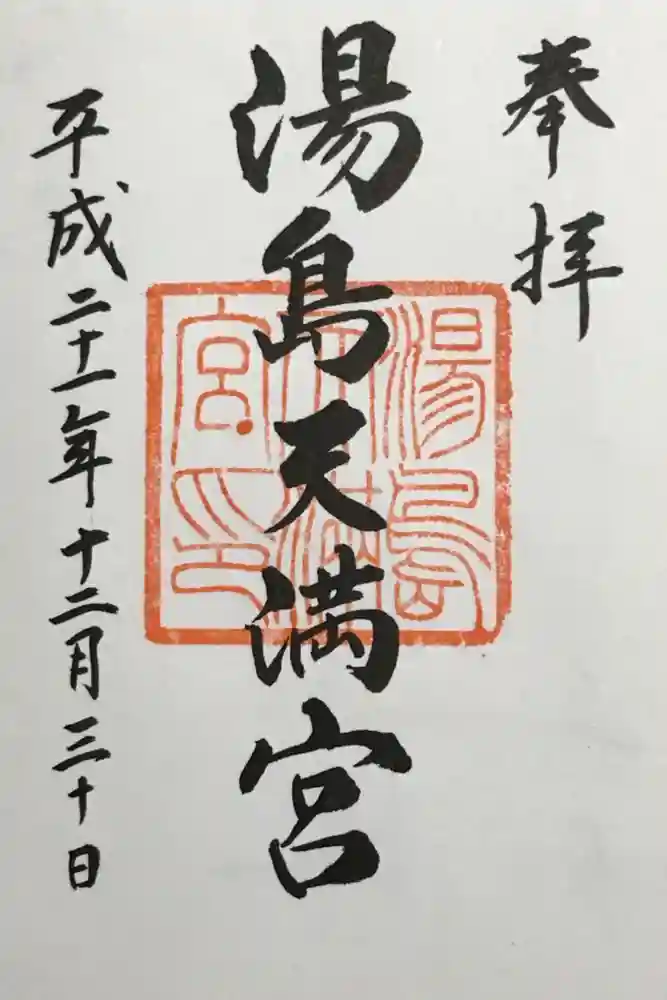 奉拝
湯島天満宮
湯島天満宮印
平成二十一年十二月三十日